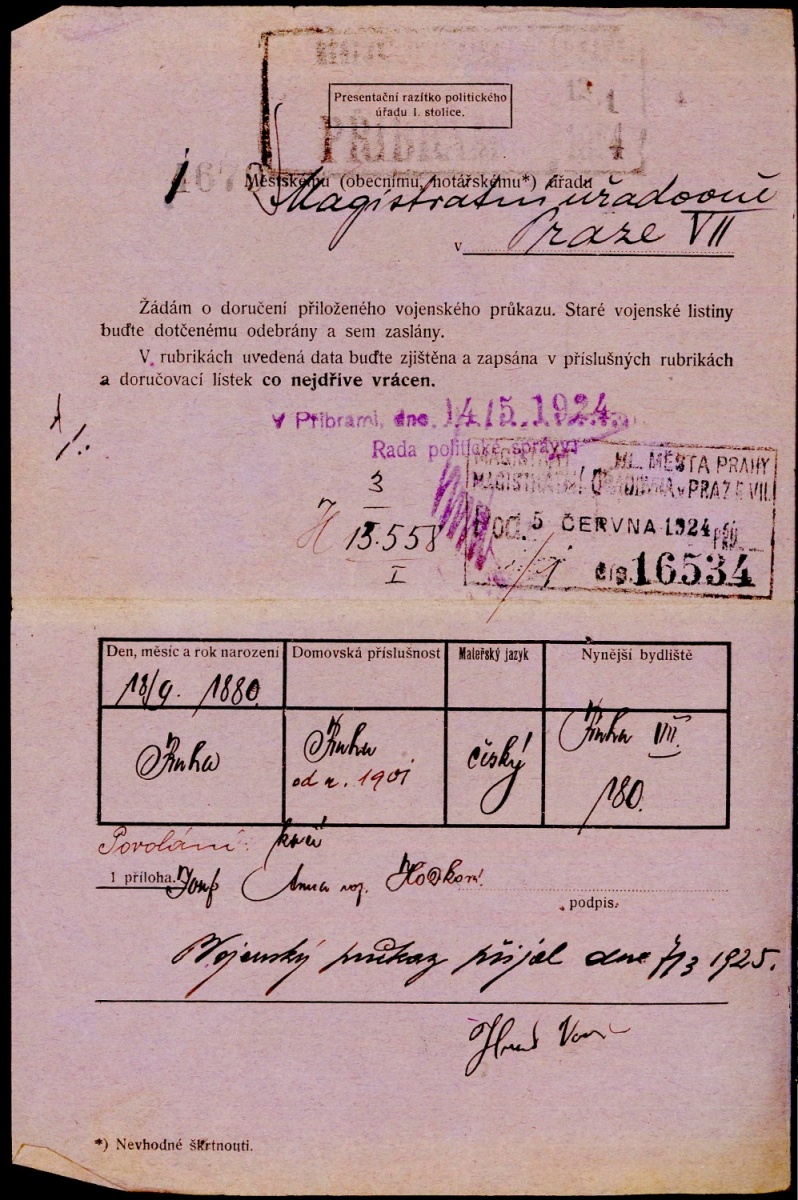 Presentační razítko politického
úřadu I. stolice.
PŘÍBRAM
Městskému (obecnímu, notářskému*) úřadu
Magistrátní úřadovně
v Praze VII
Žádám o doručení přiloženého vojenského průkazu. Staré vojenské listiny
buďte dotčenému odebrány a sem zaslány.
V rubrikách uvedená data buďte zjištěna a zapsána v příslušných rubrikách
a doručovací lístek co nejdříve vrácen.
V Příbrami, dne 14/5.1924
Rada politické správy:
MAGISTRÁT HL. MĚSTA PRAHY
MAGISTRÁTNÍ ÚŘADOVNA v PRAZE VII.
DOŠ. 5 ČERVNA 1924
čís. 16534
3
15.558
I
Den, měsíc a rok narození Domovská příslušnost Mateřský jazyk Nynější bydliště
18/9. 1880.
Praha Praha český Praha VII.
od r. 1901 180.
Povolání:
1 příloha. Josef Anna roz.
podpis.
Vojenský průkaz přijal dne 7/3 1925.
*) Nevhodné škrtnouti.